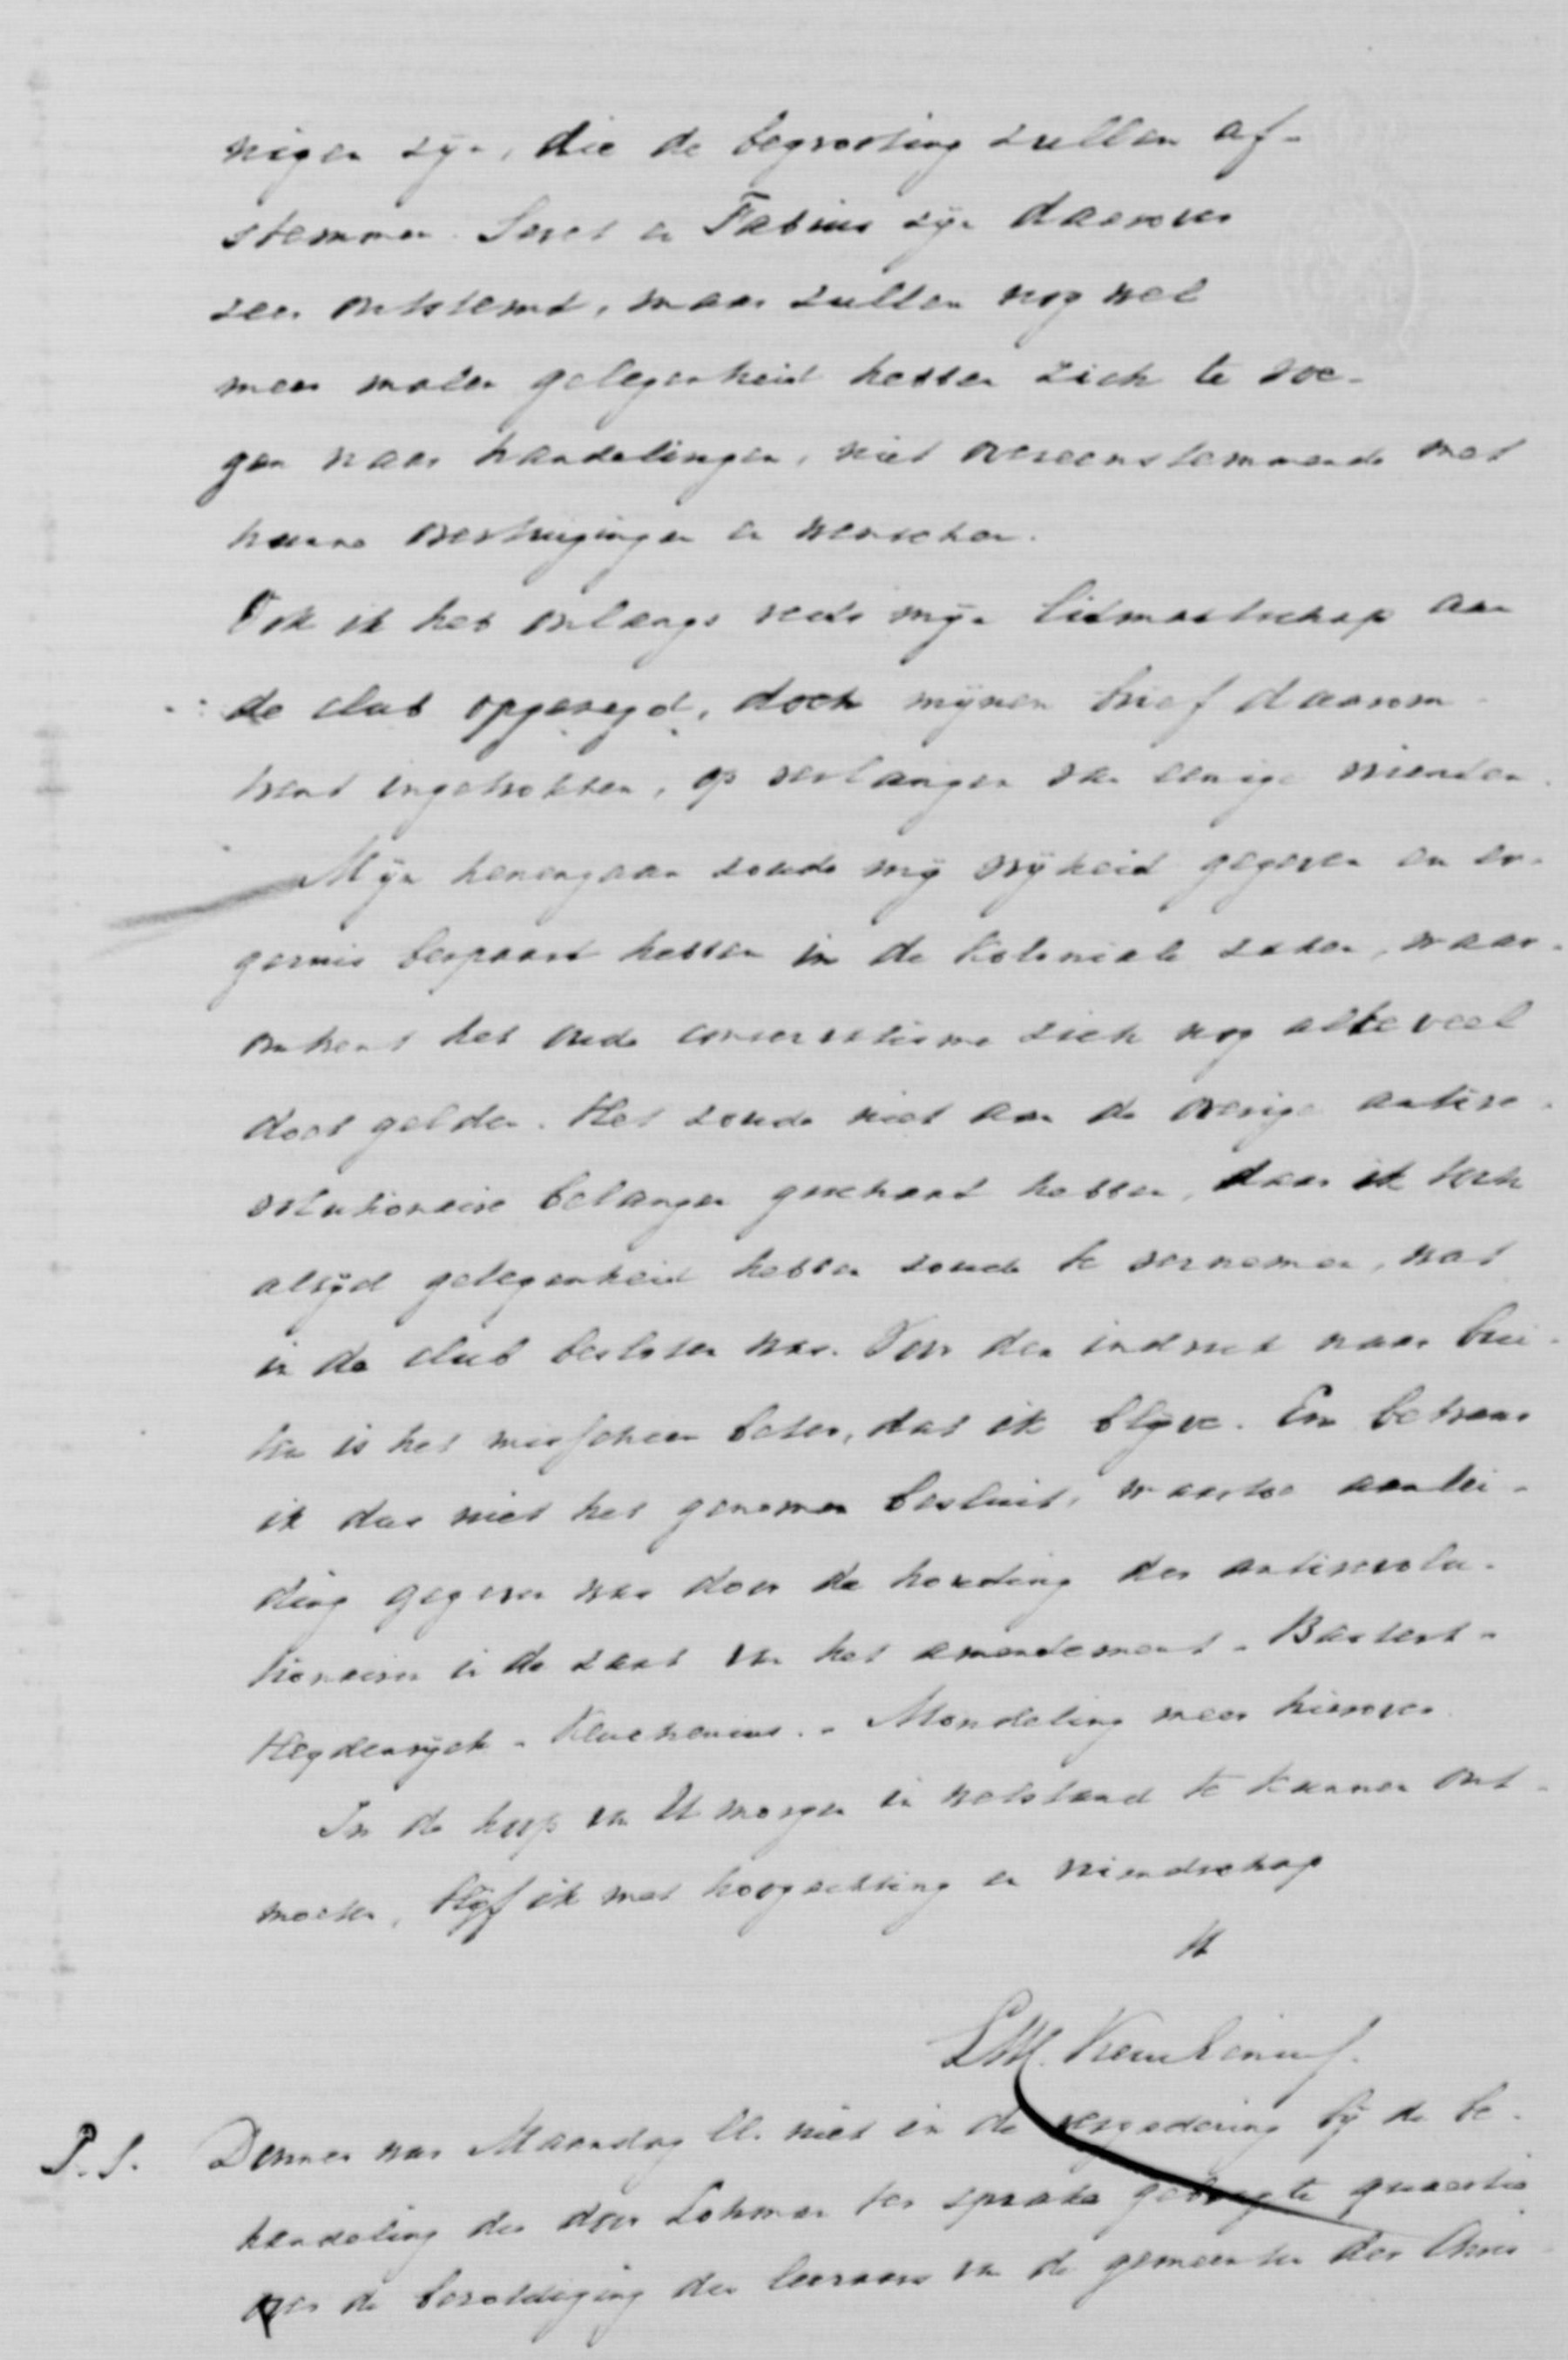 nigen zijn, die de begrooting zullen af-
stemmen. Seret en Fabius zijn daarover
zeer ontstemd, maar zullen nog wel
meer malen gelegenheid hebben zich te voe-
gen naar handelingen, niet overeenstemmende met
hunne overtuigingen en wenschen.
Ook ik heb onlangs reeds mijn lidmaatschap aan
de club opgezegd, doch mijnen brief daarom-
trent ingetrokken, op verlangen van eenige vrienden.
Mijn henengaan zoude mij vrijheid gegeven en er-
gernis bespaard hebben in de Koloniale zaken, waar-
omtrent het oude conservatisme zich nog alteveel
doet gelden. Het zoude niet aan de overige antire-
volutionaire belangen geschaad hebben, daar ik toch
altijd gelegenheid hebben zoude te vernemen, wat
in de club besloten was. Voor den indruk naar bui-
ten is het misschien beter, dat ik blijve. En betreur
ik dus niet het genomen besluit, waartoe aanlei-
ding gegeven was door de houding der antirevolu-
tionairen in de zaak van het amendement - Bastert -
Heydenrijck - Keuchenius. - Mondeling meer hierover.
In de hoop van U morgen in welstand te kunnen ont-
moeten, blijf ik met hoogachting en vriendschap
U
L.W.C. Keuchenius.
P.S. Donner was Maandag ll. niet in de vergadering bij de be-
handeling der door Lohman ter sprake gebragte quaestie
over de bezoldiging der leeraars van de gemeenten der Chris